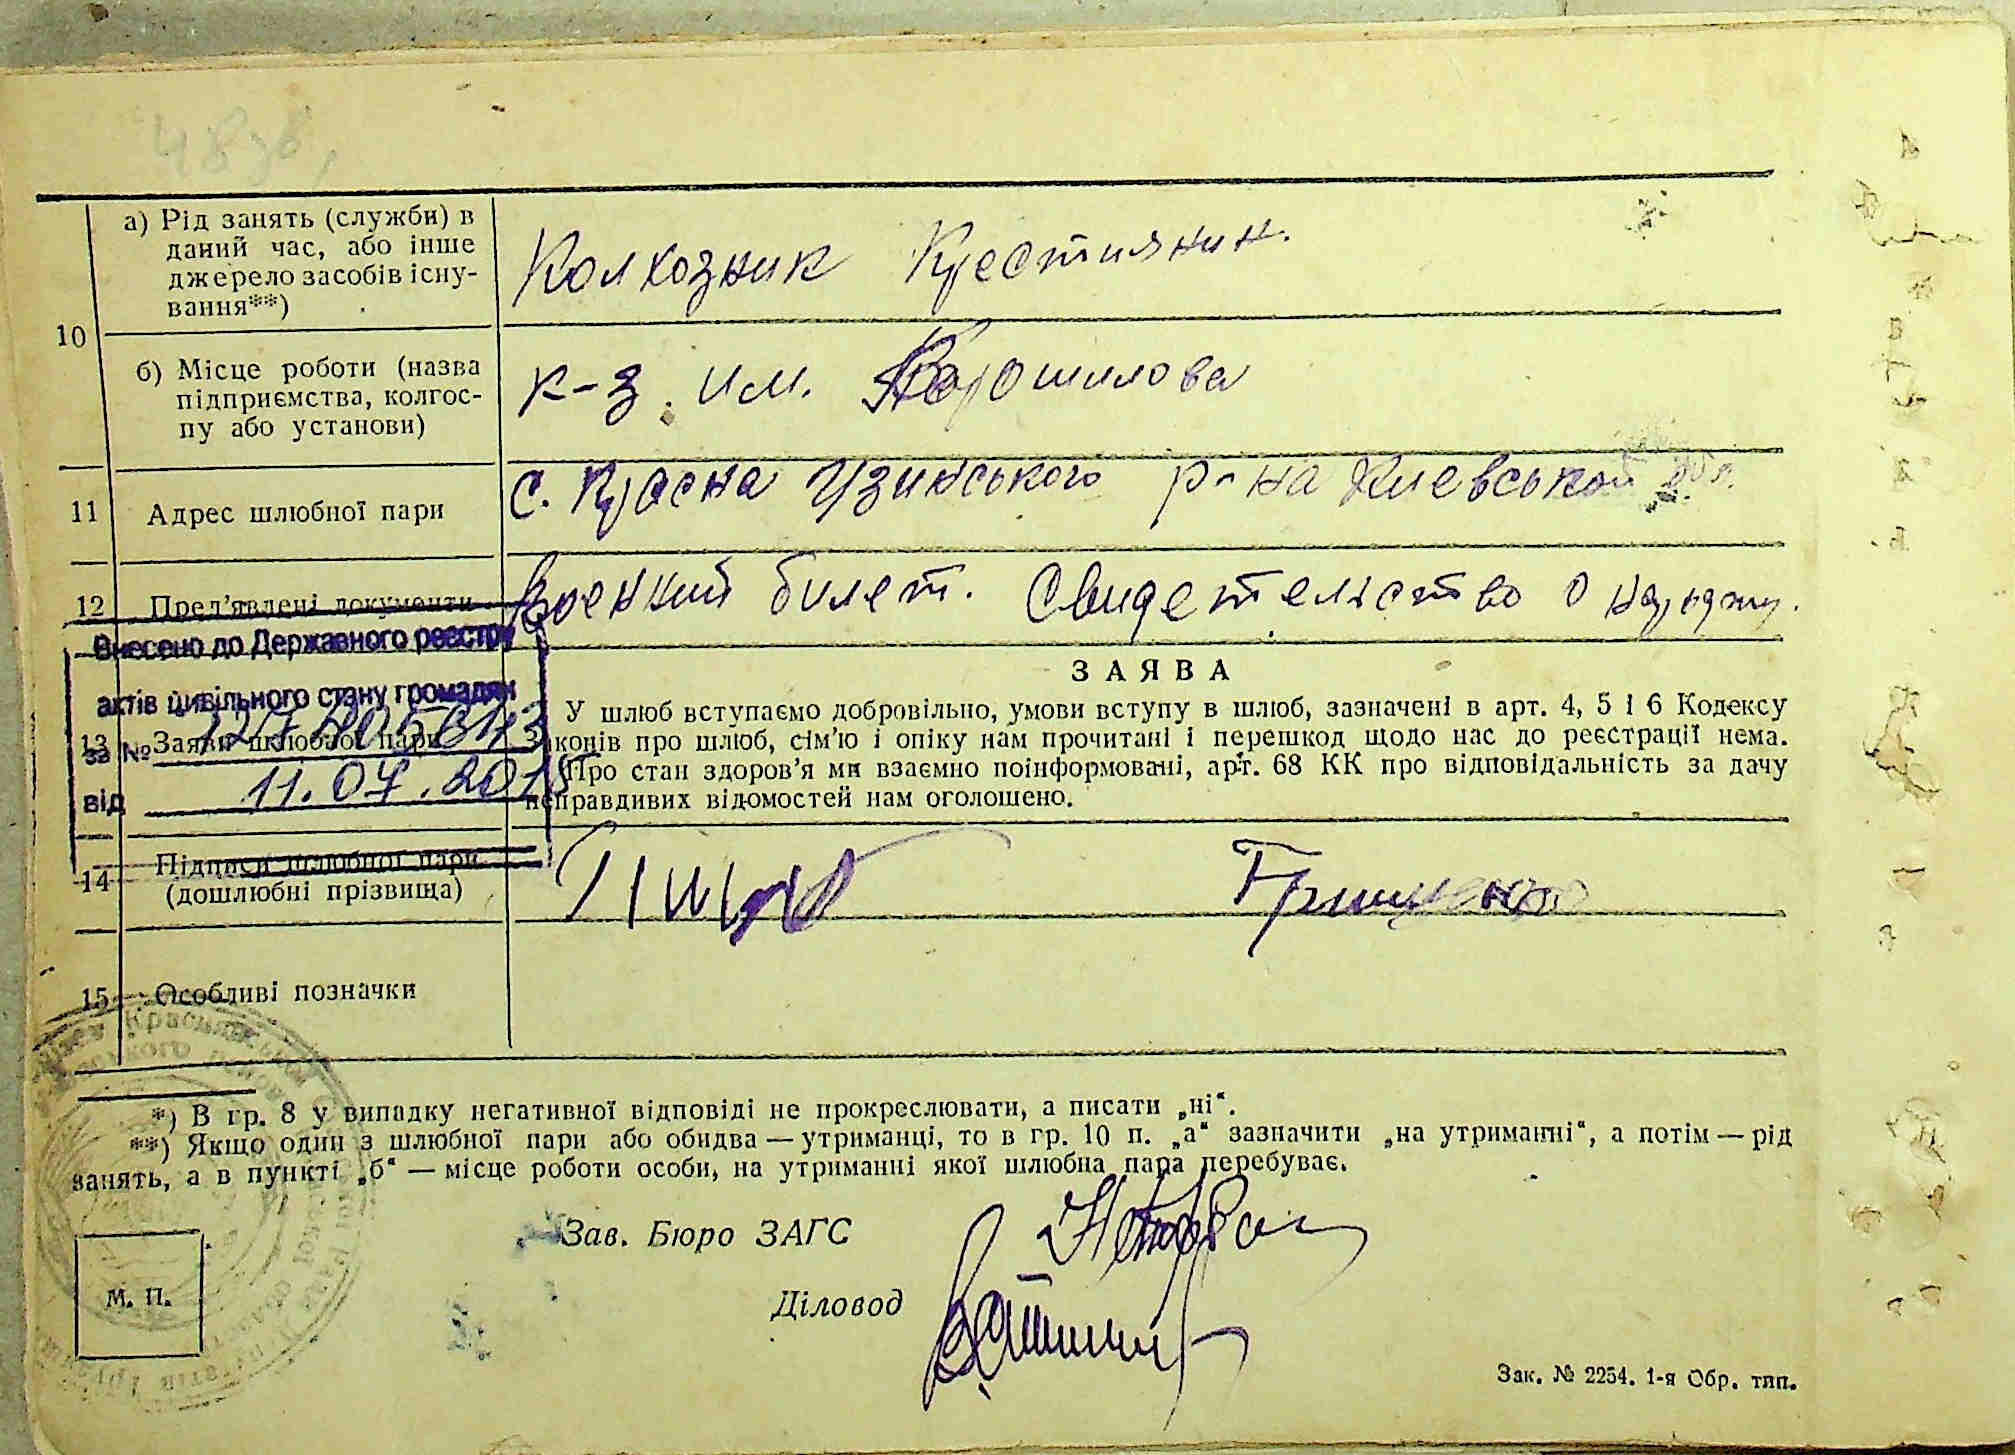 а) Рід занять (служби) в
даний час, або інше
джерело засобів існу-
вання**)
Колхозник Крестиянин.
10
б) Місце роботи (назва
підприємства, колгос-
пу або установи)
к-з. им. Ворошилова
11 Адрес шлюбної пари
с. Красна Узинського р-на Киевськой обл.
12 Пред'явлені документи
Военний билет. Свидетельство о
Внесено до Державного реєстру
актів цивільного стану громадян
за №
від 11.07.201
13 Заяви шлюбної пари
ЗАЯВА
У шлюб вступаємо добровільно, умови вступу в шлюб, зазначені в арт. 4, 5 і 6 Кодексу
законів про шлюб, сім'ю і опіку нам прочитані і перешкод щодо нас до реєстрації нема.
Про стан здоров'я ми взаємно поінформовані, арт. 68 КК про відповідальність за дачу
неправдивих відомостей нам оголошено.
14 Підписи шлюбної пари
(дошлюбні прізвища)
Грищенко
15 Особливі позначки
*) В гр. 8 у випадку негативної відповіді не прокреслювати, а писати „ні“.
**) Якщо один з шлюбної пари або обидва — утриманці, то в гр. 10 п. „а“ зазначити „на утриманні“, а потім — рід
занять, а в пункті „б“ — місце роботи особи, на утриманні якої шлюбна пара перебуває.
Зав. Бюро ЗАГС
Діловод
М. П.
Зак. № 2254. 1-я Обр. тип.